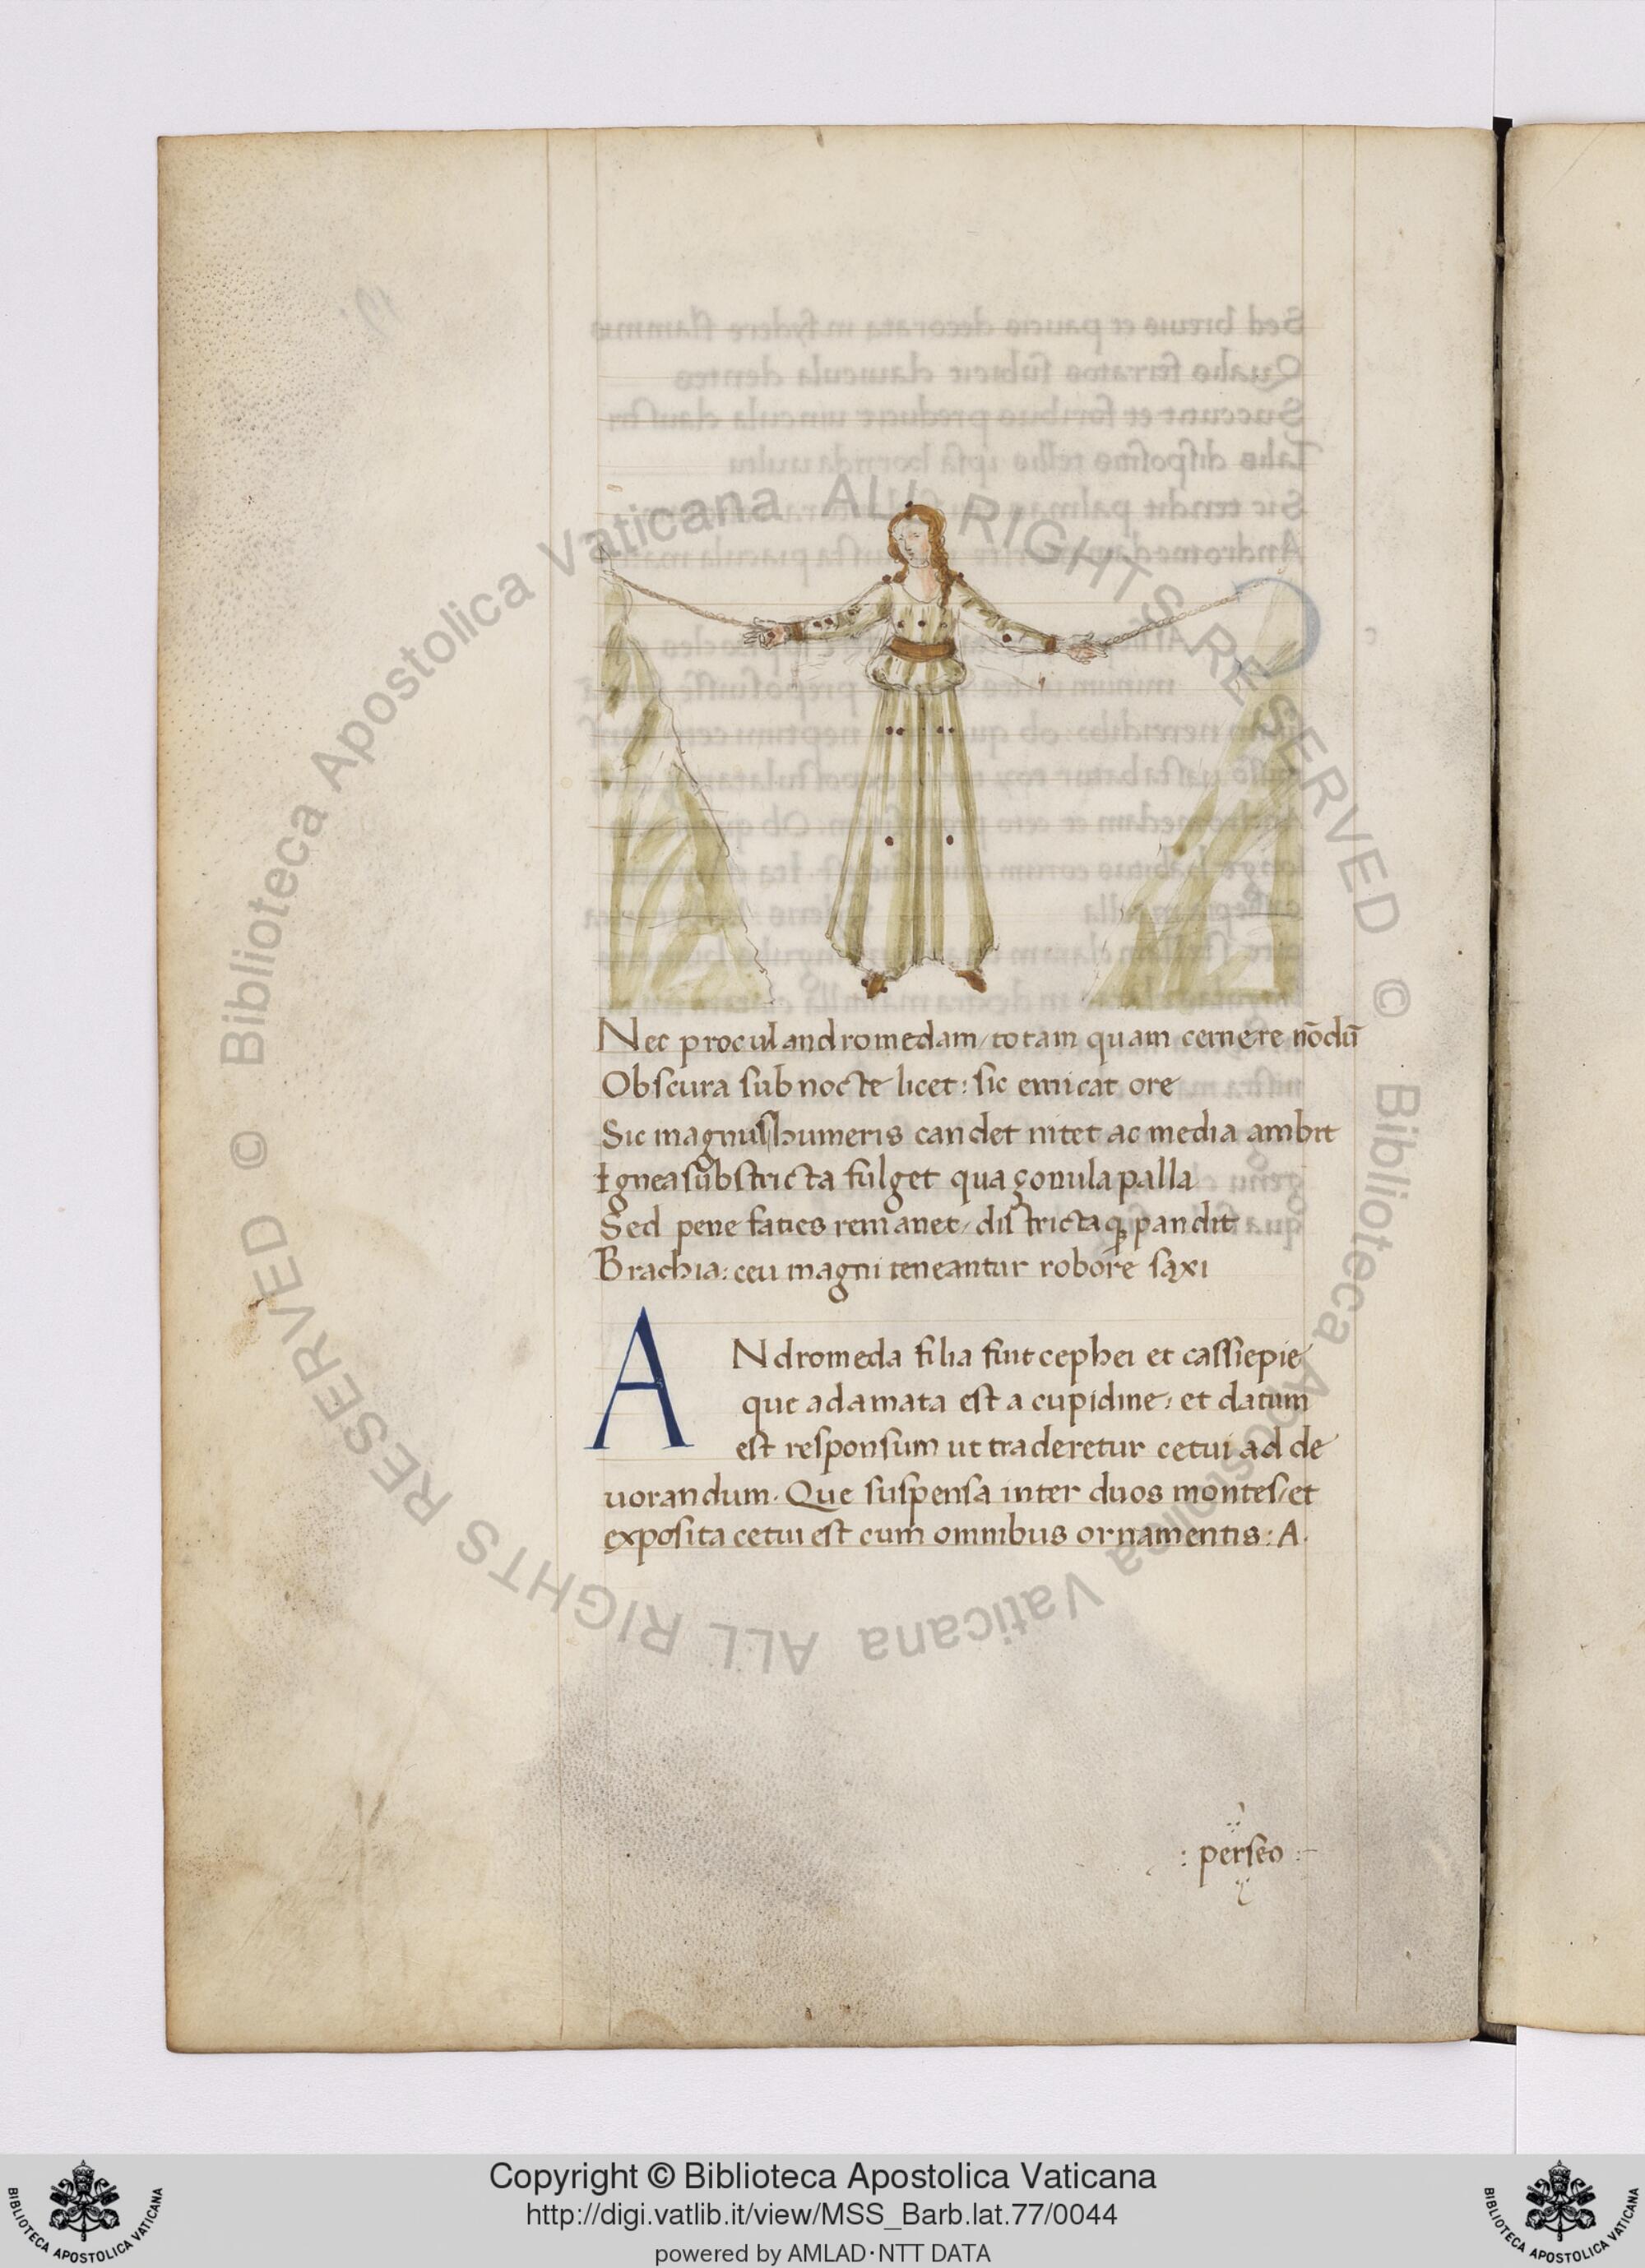 Nec procul andromedam/totam quam cernere nōdū
Obscura sub nocte licet: sic emicat ore
Sic magnus humeris candet nitet ac media ambit
Ignea substricta fulget qua zonula palla
Sed pene facies remanet/districtaqꝫ pandit
Brachia: ceu magni teneantur robore saxi
ANdromeda filia fuit cephei et cassiepie
que adamata est a cupidine: et datum
est responsum ut traderetur cetui ad de
uorandum. Que suspensa inter duos montes/et
exposita cetui est cum omnibus ornamentis: A.
: perseo :
© Biblioteca Apostolica Vaticana ALL RIGHTS RESERVED © Biblioteca Apostolica Vaticana ALL RIGHTS RESERVED
Copyright © Biblioteca Apostolica Vaticana
http://digi.vatlib.it/view/MSS_Barb.lat.77/0044
powered by AMLAD·NTT DATA
BIBLIOTECA APOSTOLICA VATICANA
BIBLIOTECA APOSTOLICA VATICANA